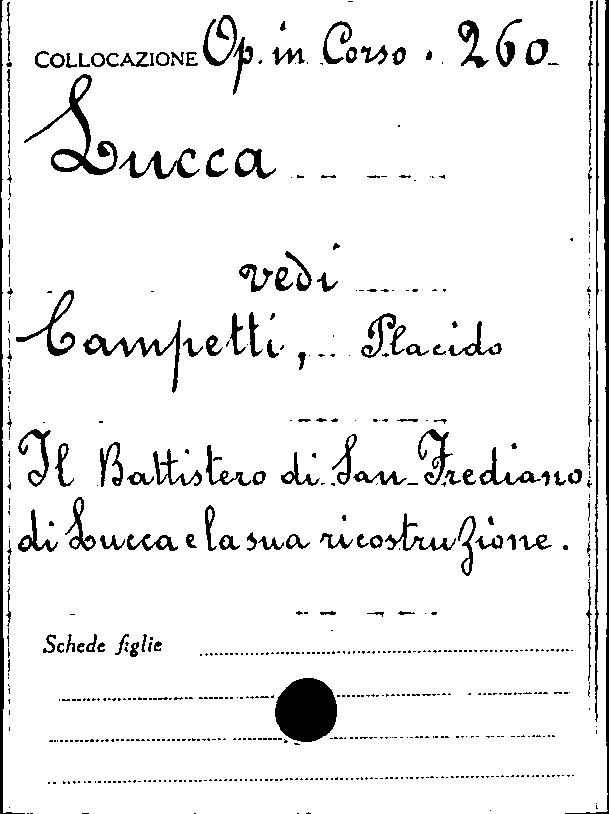 COLLOCAZIONE Op. in Corso. 260
Lucca
vedi
Campetti, Placido
Il Battistero di San Frediano
di Lucca e la sua ricostruzione.
Schede figlie